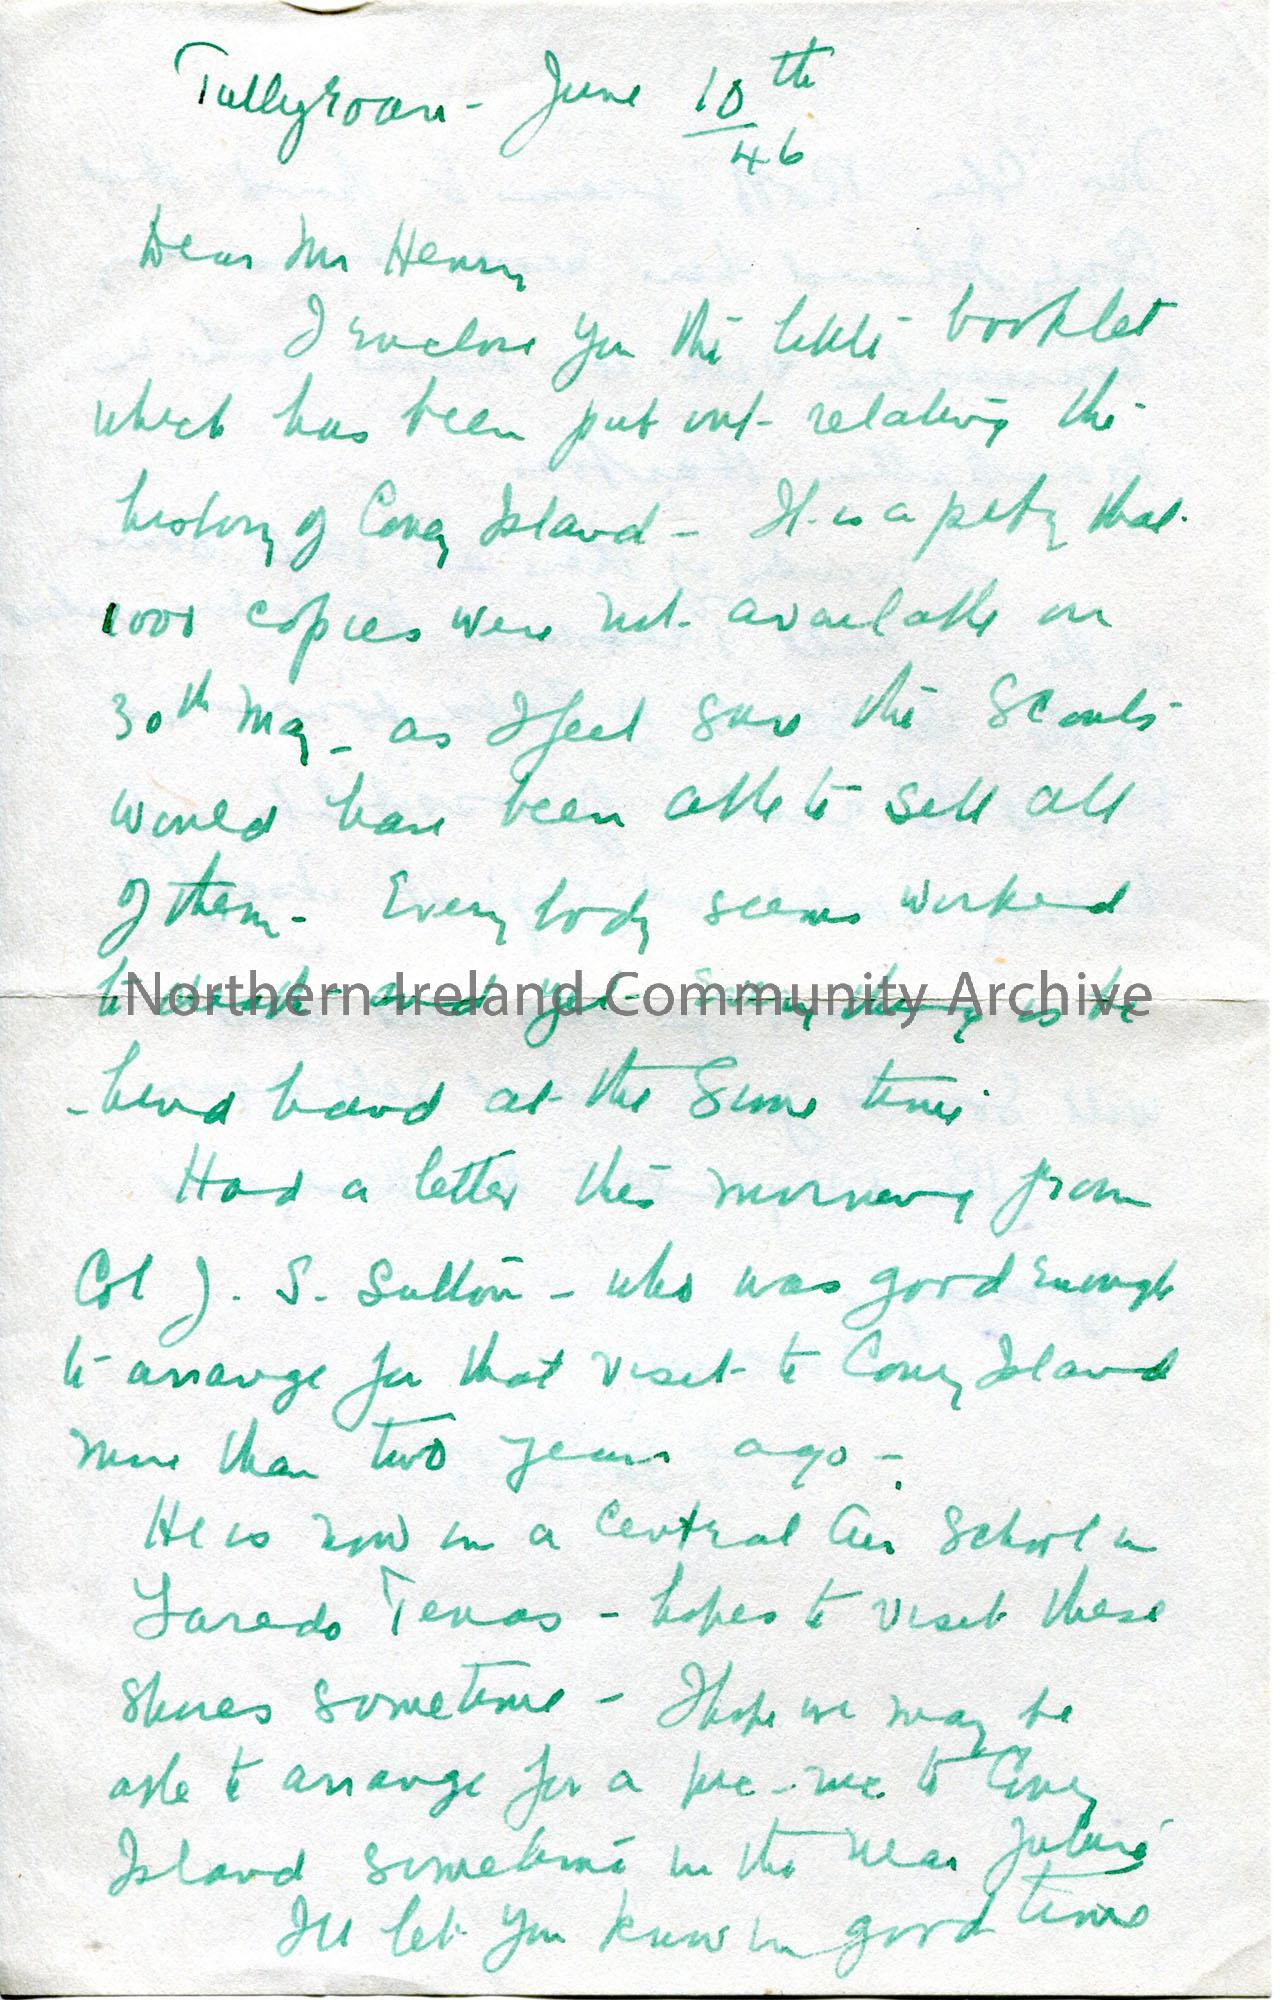 Tullyroan - June 10th
46
Dear Mr Henry
I enclose you the little booklet
which has been put out - relating the
history of Coney Island - It is a pity that
1000 copies were not available on
30th May - as I feel sure the Scouts
would have been able to sell all
of them - Every body seems worked
to death and yet - every thing is be
Northern Ireland Community Archive
-hind hand at the same time.
Had a letter this morning from
Col J. S. Sutton - who was good enough
to arrange for that visit to Coney Island
more than two years ago -
He is now in a Central Air School in
Laredo Texas - hopes to visit these
shores sometime - I hope we may be
able to arrange for a pic-nic to Coney
Island sometime in the near future
I'll let you know in good time